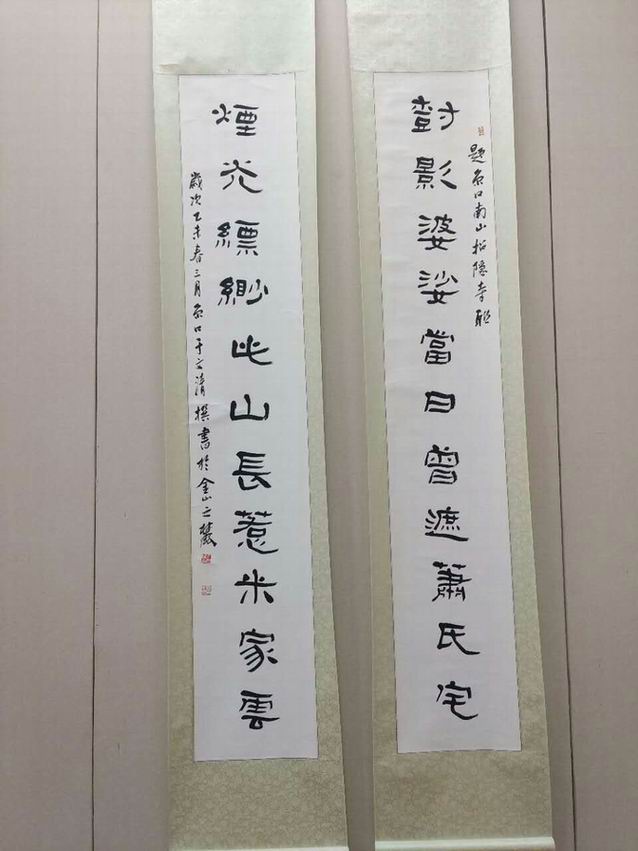 題京口南山招隱寺聯
尌影婆娑當日曾遮蕭氏宅
煙光縹緲此山長惹米家雲
歲次乙未春三月京口于文清撰書於金山之麓